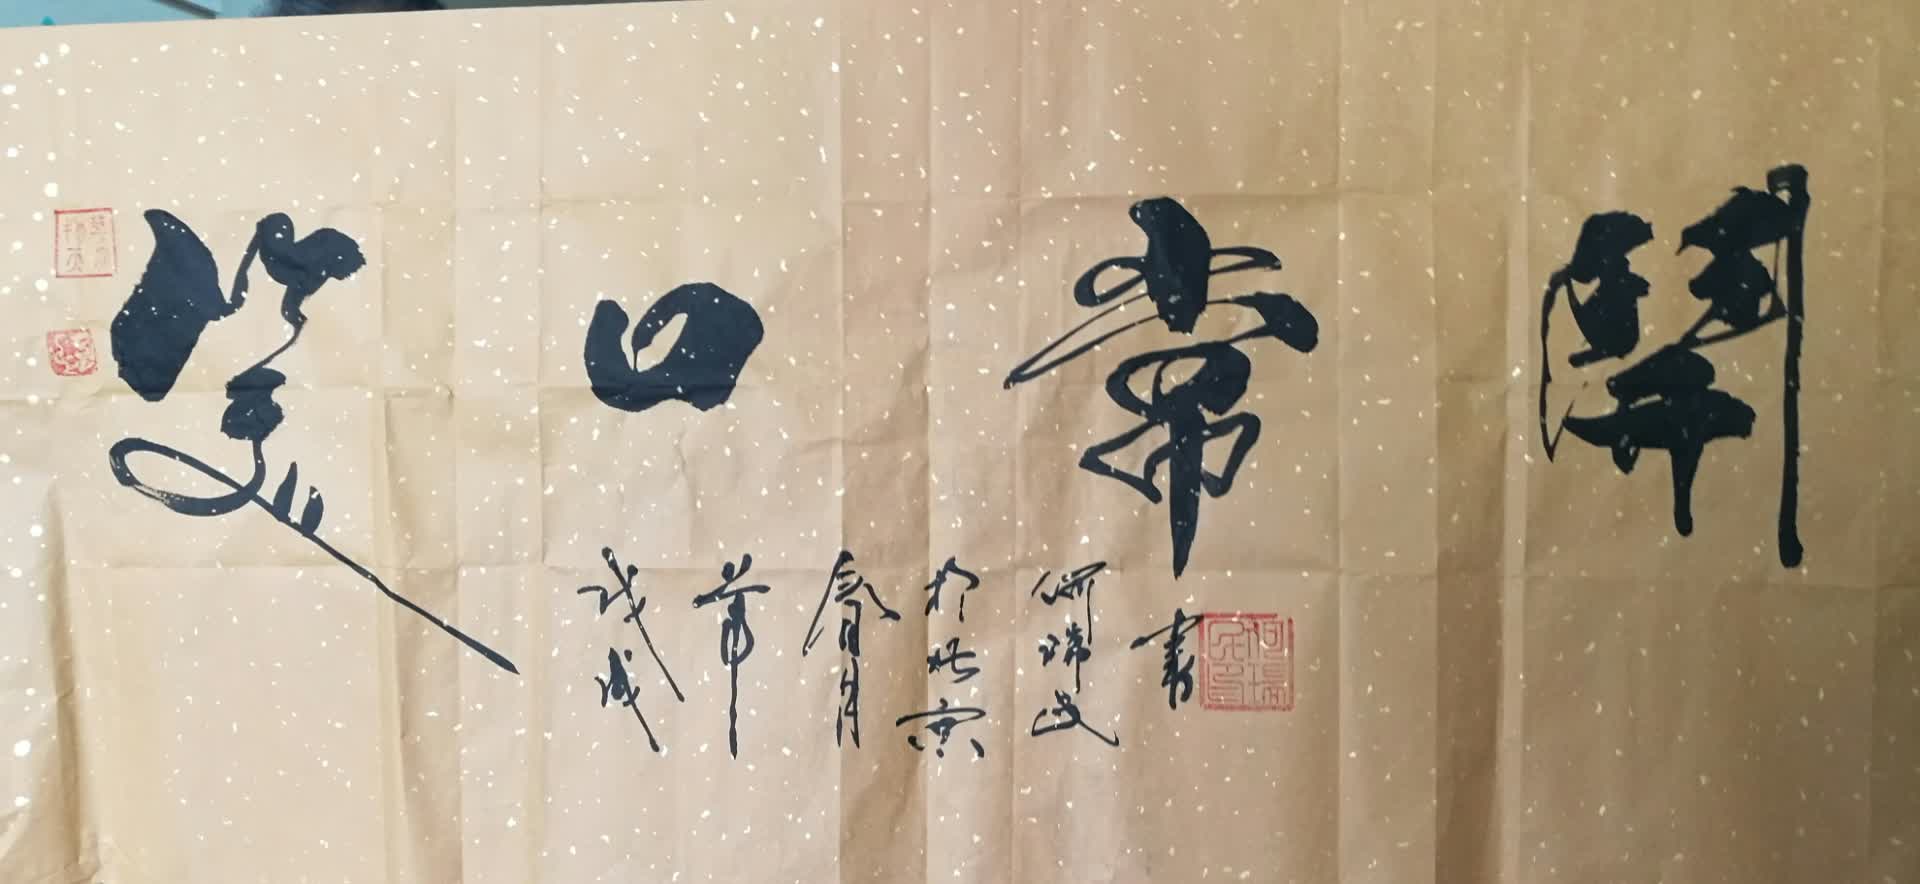 笑口常開
戊戌
年
春月
於北京
何瑞民
書
何瑞民印